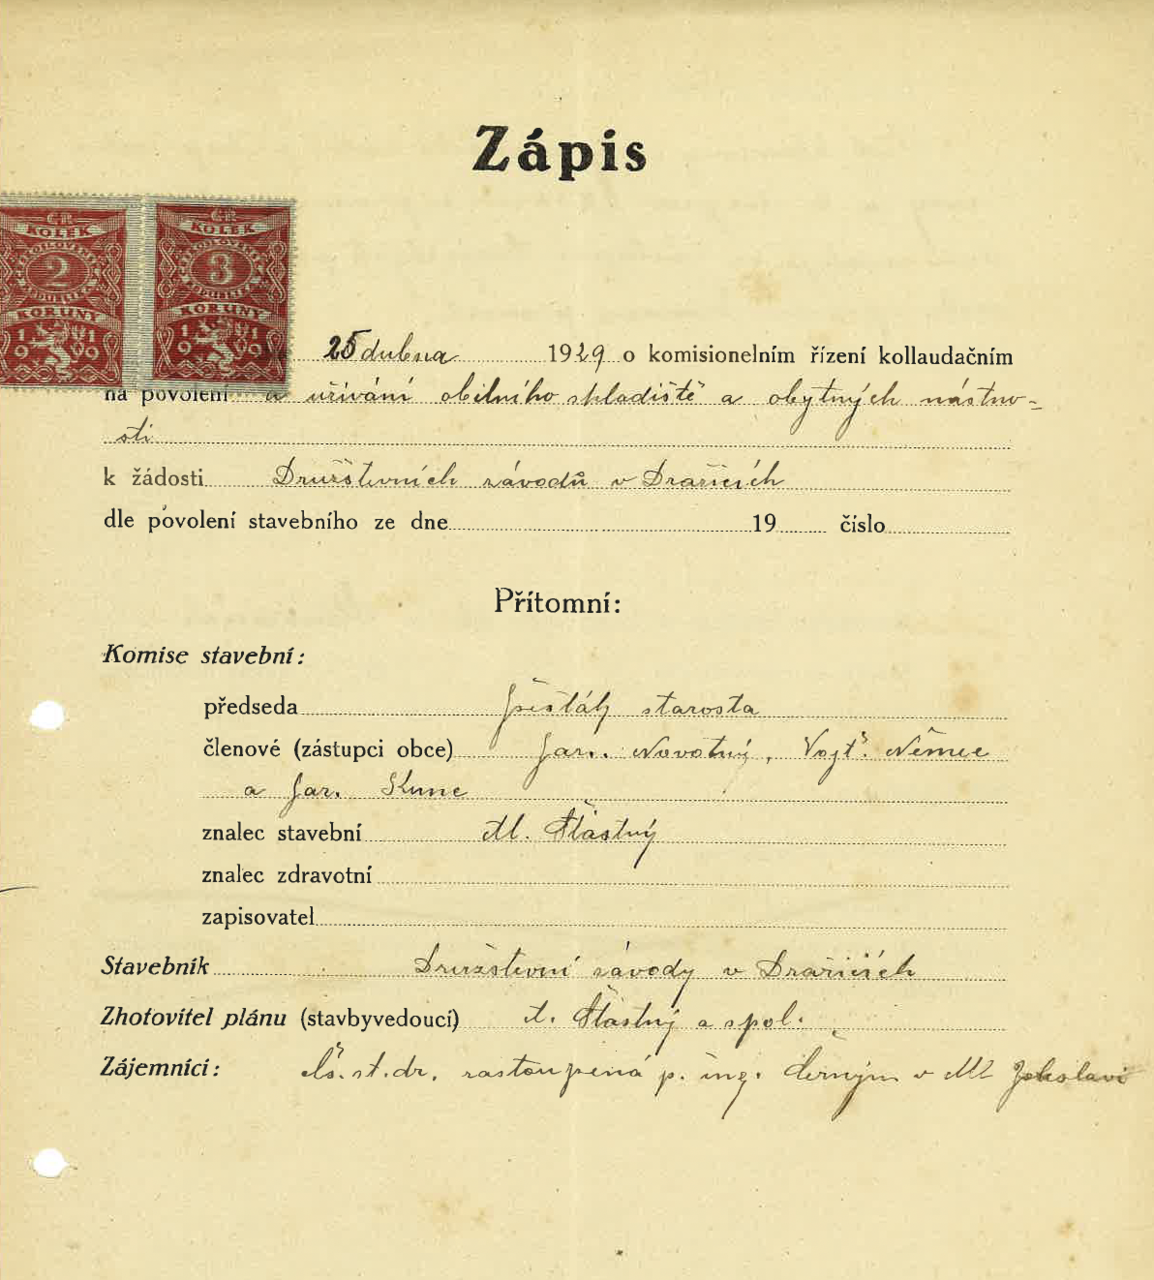 Zápis
Č.R. Č.R.
KOLEK KOLEK
2 3
KORUNY KORUNY
1919 1919
25 dubna 1929 o komisionelním řízení kollaudačním
na povolení k užívání obilního skladiště a obytných místno-
sti
k žádosti Družstevních závodů v Dražicích
dle povolení stavebního ze dne 19 číslo
Přítomní:
Komise stavební:
předseda starosta
členové (zástupci obce) Jar. Novotný, Vojt. Němec
a Jar. Kunc
znalec stavební Šťastný
znalec zdravotní
zapisovatel
Stavebník Družstevní závody v Dražicích
Zhotovitel plánu (stavbyvedoucí) Šťastný a spol.
Zájemníci: Čs. st. dr. zastoupená p. ing. Černým v Ml